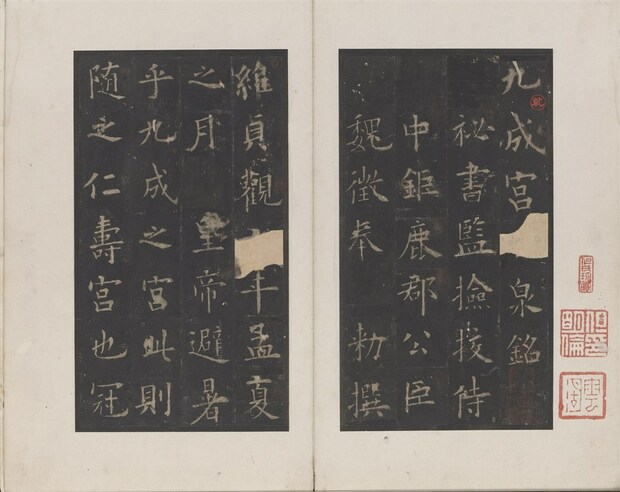 九成宮 泉銘
祕書監撿挍侍
中鉅鹿郡公臣
魏徵奉 勑撰
維貞觀 年孟夏
之月 皇帝避暑
乎九成之宮此則
随之仁壽宮也冠